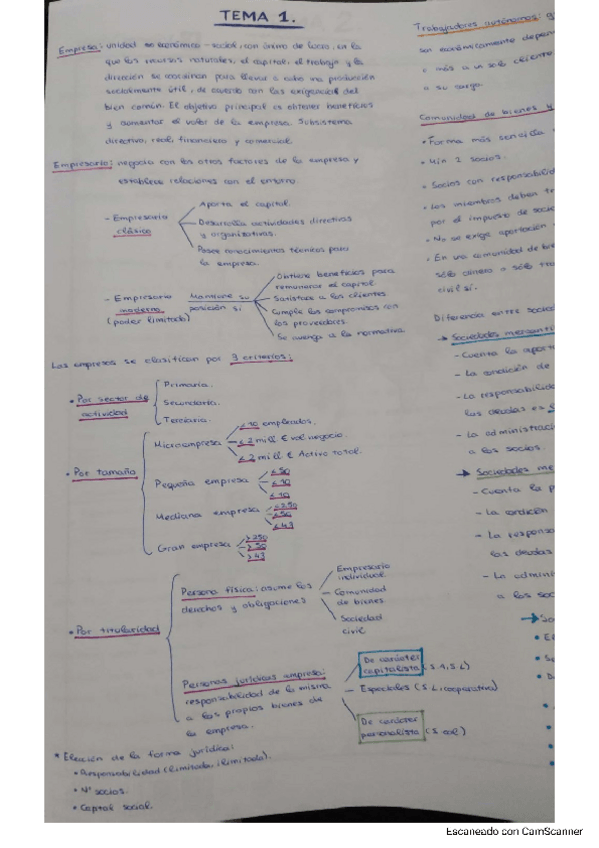 TEMA 1.
Empresa: unidad económico-social, con ánimo de lucro, en la
que los recursos naturales, el capital, el trabajo y la
dirección se coordinan para llevar a cabo una producción
socialmente útil, de acuerdo con las exigencias del
bien común. El objetivo principal es obtener beneficios
y aumentar el valor de la empresa. Subsistema
directivo, real, financiero y comercial.
Empresario: negocia con los otros factores de la empresa y
establece relaciones con el entorno.
- Empresario
clásico
Aporta el capital.
Desarrolla actividades directivas
y organizativas.
Posee conocimientos técnicos para
la empresa.
- Empresario
moderno
(poder limitado)
Mantiene su
posición si
Obtiene beneficios para
remunerar el capital.
Satisface a los clientes
Cumple los compromisos con
los proveedores.
Se avenga a la normativa.
Las empresas se clasifican por 3 criterios:
• Por sector de
actividad
Primaria.
Secundaria.
Terciaria.
• Por tamaño
Microempresa
≤ 10 empleados.
≤ 2 mill € vol negocio.
≤ 2 mill € Activo Total.
Pequeña empresa
≤ 50
≤ 10
≤ 10
Mediana empresa
≤ 250
≤ 50
≤ 43
Gran empresa
> 250
> 50
> 43
• Por titularidad
Persona física: asume los
derechos y obligaciones
Empresario
individual
Comunidad
de bienes
Sociedad
civil
Personas jurídicas empresa:
responsabilidad de la misma
a los propios bienes de
la empresa.
De carácter
capitalista (S.A, S.L)
Especiales (S.L, cooperativa)
De carácter
personalista (S. col)
* Elección de la forma jurídica:
• Responsabilidad (limitada, ilimitada).
• Nº socios.
• Capital social.
Trabajadores autónomos:
son económicamente depen
o más a un solo cliente
a su cargo.
Comunidad de bienes y
• Forma más sencilla
• Mín 2 socios.
• Socios con responsabilid
• Los miembros deben tr
por el impuesto de socie
• No se exige aportación
• En una comunidad de bie
sólo dinero o sólo tra
civil sí.
Diferencia entre socie
→ Sociedades mercanti
- Cuenta la aport
- La condición de
- La responsabilida
las deudas es
- La administraci
a los socios.
→ Sociedades me
- Cuenta la p
- La condición
- La responsa
las deudas
- La admini
a los soc
Escaneado con CamScanner